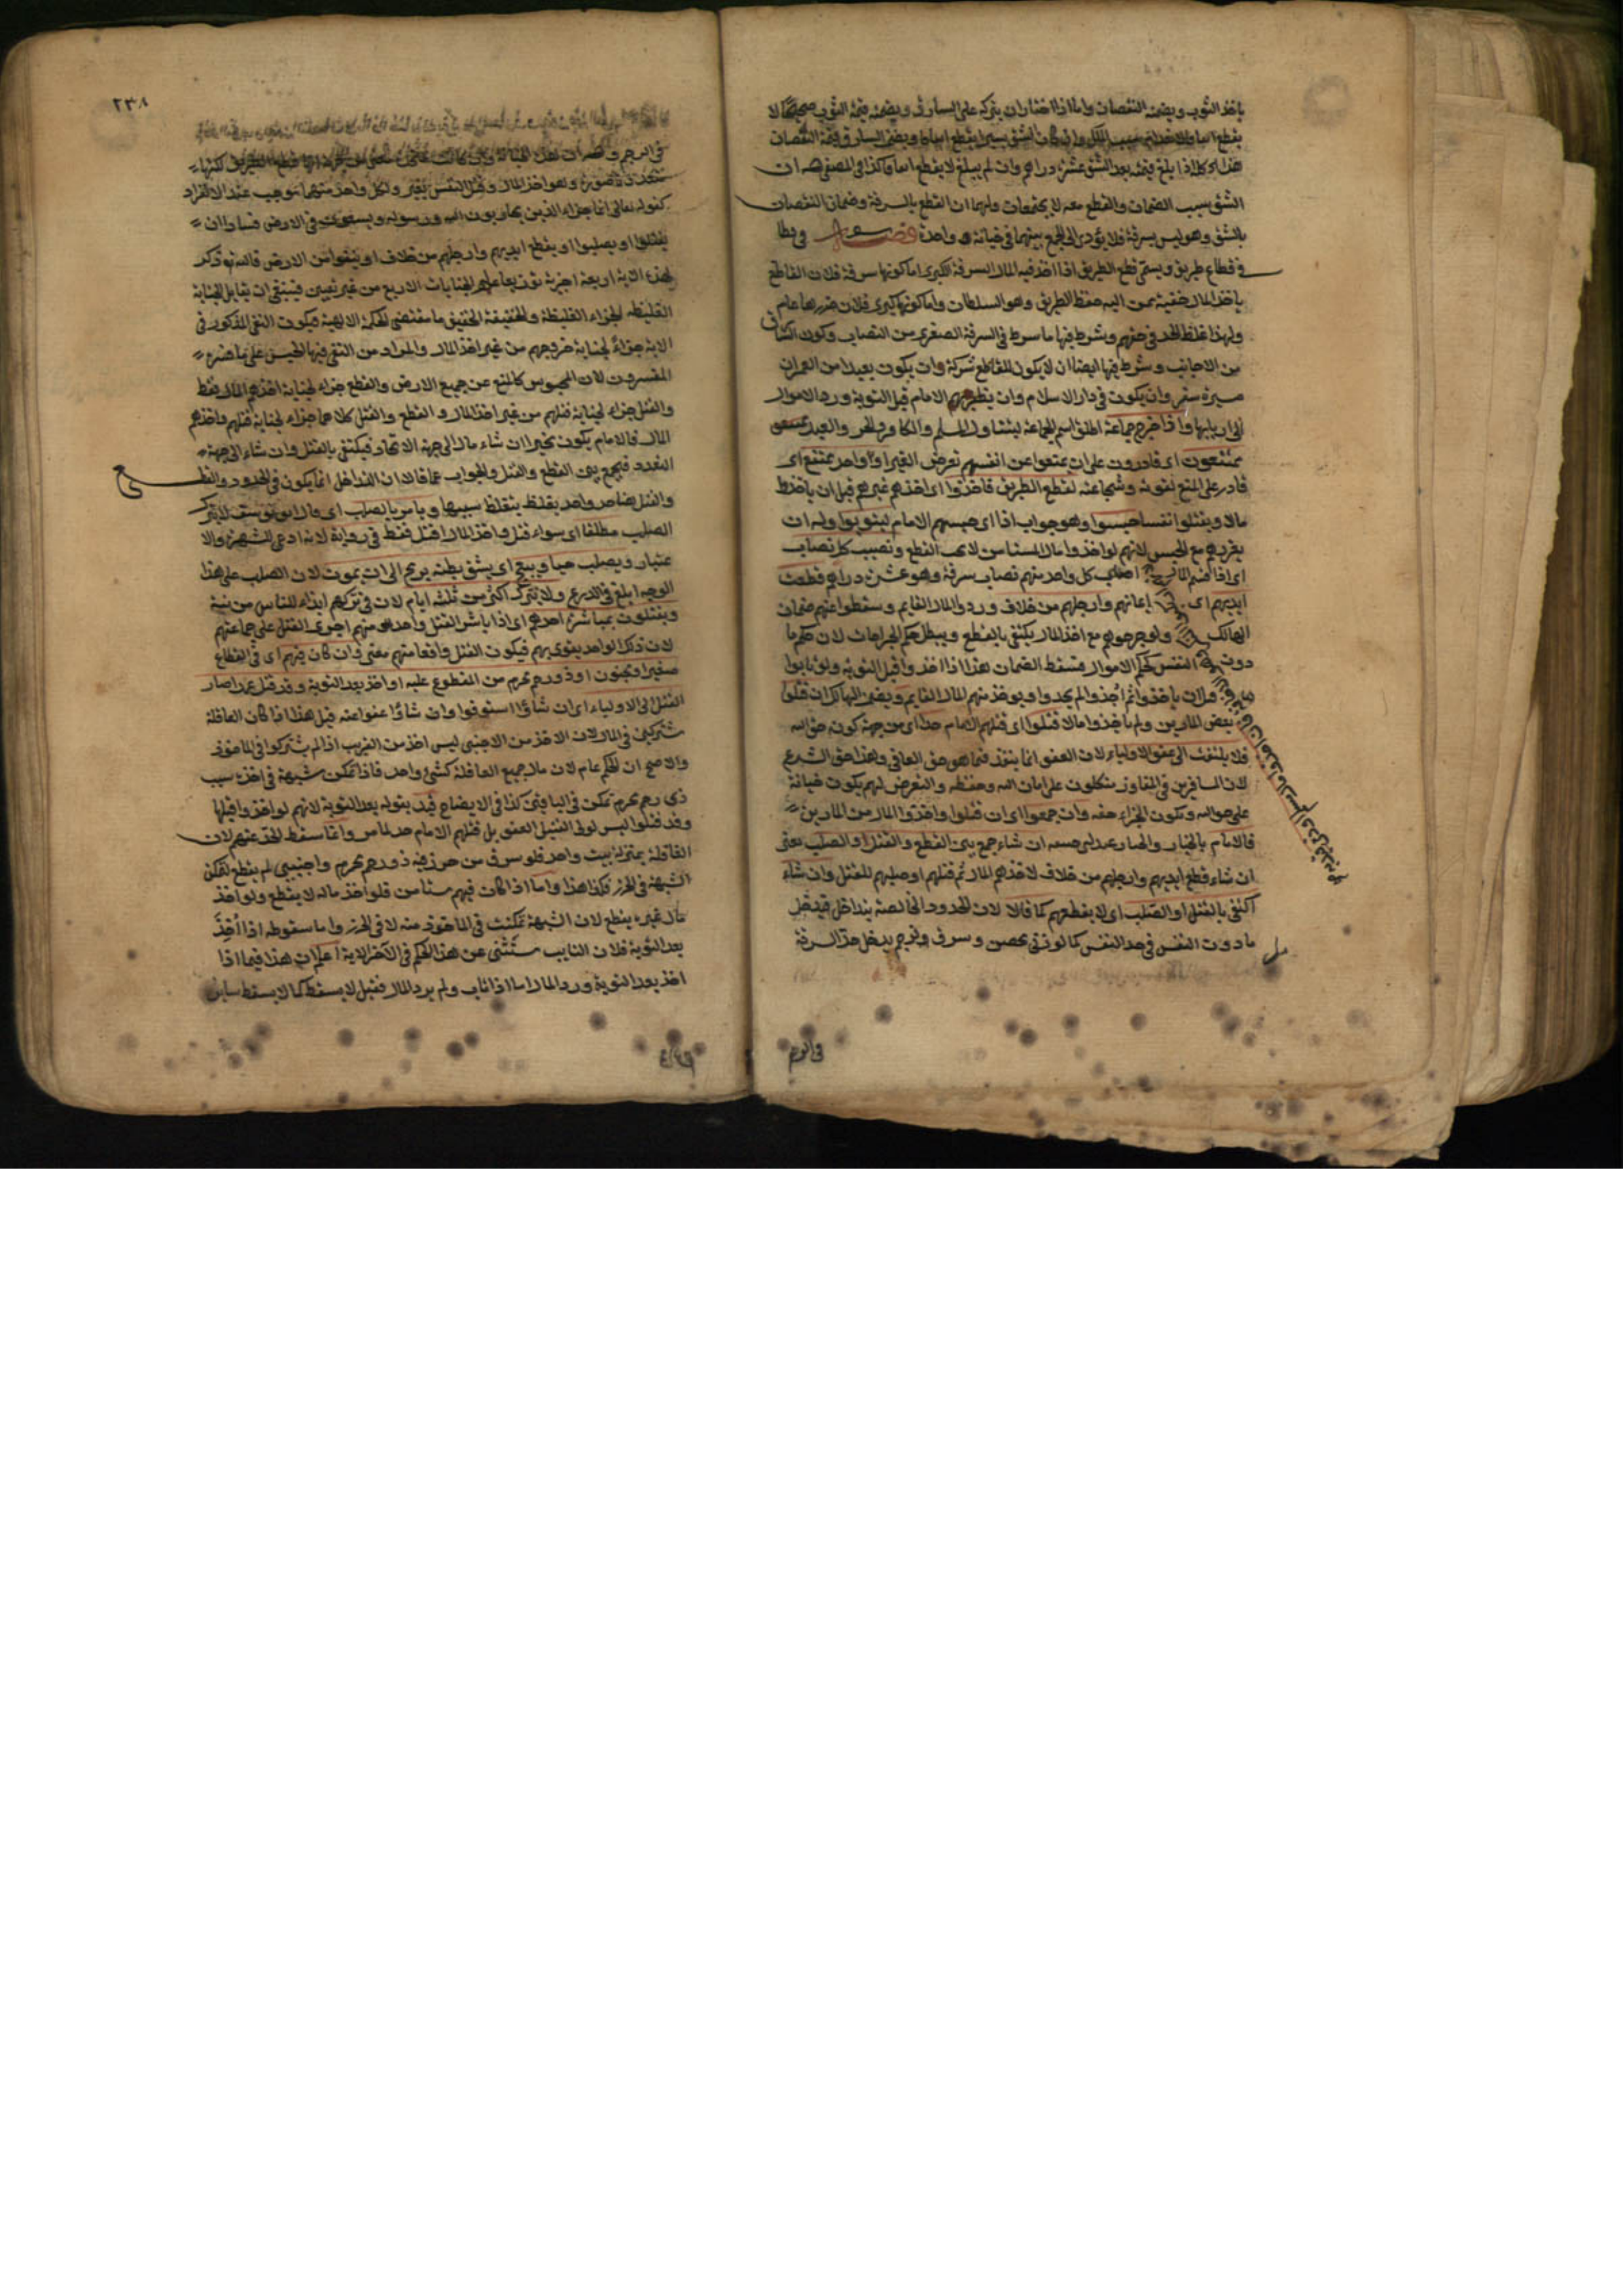 ياخذ الثوب ويضمنه النقصان واما اذا اختار ان يتركه على السارق ويضمنه قيمة الثوب صحيحا لا
يقطع اتفاقا لانه وان كان الشق يسيرا يقطع اتفاقا ويضمن السارق قيمة النقصان
هذا كله اذا بلغ قيمته بعد الشق عشرة دراهم وان لم يبلغ لا يقطع اتفاقا كذا في المصفى له ان
الشق سبب الضمان والقطع معه لا يجتمعان ولهما ان القطع بالسرقة وضمان النقصان
بالشق وهو ليس بسرقة فلا يؤدى الى الجمع بينهما في خيانة واحدة فصل في قطا
في قطاع طريق ويسمى قطع الطريق اذا اخذ فيه المال السرقة الكبرى اما كونها سرقة فلان القاطع
ياخذ المال خفية عمن اليه حفظ الطريق وهو السلطان واما كونها كبرى فلان ضررها عام
ولهذا غلظ الحد في حقهم وشرط فيها ما شرط في السرقة الصغرى من النصاب وكون السارق
من الاجانب وشرط فيها ايضا ان لا يكون للقاطع شركة وان يكون بعيدا من العمران
مسيرة سفر وان يكون في دار الاسلام وان يظفر بهم الامام قبل التوبة ورد الاموال
الى اربابها واذا خرج جماعة اطلق اسم الجماعة ليتناول المسلم والكافر والحر والعبد
ممتنعون اى قادرون على ان يمتنعوا عن انفسهم تعرض الغير او واحد ممتنع اى
قادر على المنع لقوته وشجاعته لقطع الطريق فاخذوا اى اخذهم غيرهم قبل ان ياخذوا
مالا ويقتلوا نفسا حبسوا وهو جواب اذا اى حبسهم الامام ليتوبوا وله ان
يعزرهم مع الحبس لانهم لو اخذوا مال المستامن لا يجب القطع ونصيب كل نصاب
اى اذا قسم المال اصاب كل واحد منهم نصاب سرقة وهو عشرة دراهم قطعت
ايديهم اى ايمانهم وارجلهم من خلاف وردوا المال القايم وسقطوا عنهم ضمان
الهالك ولو جرحوهم مع اخذ المال يكتفى بالقطع ويبطل حكم الجراحات لان حكم ما
دون النفس كحكم الاموال فتسقط الضمان هذا اذا اخذوا قبل التوبة ولو تابوا
قبل ان ياخذوا ثم اخذوا لم يحدوا ويوخذ منهم المال القايم ويضمن الهالك ان قتلوا
بعض المارين ولم ياخذوا مالا قتلوا اى قتلهم الامام حدا اى من جهة كونه حق الله
فلا يلتفت الى عفو الاولياء لان العفو انما ينفذ فيما هو حق العافي وهذا حق الشرع
لان المسافرين في المفاوز متكلون على امان الله وحفظه والتعرض لهم يكون خيانة
على حق الله ويكون الجزاء حقه وان جمعوا اى ان قتلوا واخذوا المال من المارين
فالامام بالخيار ان شاء جمع بين القطع والقتل او الصلب يعنى
ان شاء قطع ايديهم وارجلهم من خلاف لاخذهم المال ثم قتلهم او صلبهم للقتل وان شاء
اكتفى بالقتل او الصلب اى لا يقطعهم كما قالا لان الحدود الخالصة يتداخل فيدخل
ما دون النفس في حد النفس كما لو زنى محصن وسرق ورجم يدخل حد السرقة
في الرجم
٢٣٨
في الرجم وله ان هذه الجناية وان كانت
متعددة صورة وهو اخذ المال وقتل النفس بغير ولكل واحد منهما موجب عند الانفراد
كقوله تعالى انما جزاء الذين يحاربون الله ورسوله ويسعون في الارض فسادا ان
يقتلوا او يصلبوا او يقطع ايديهم وارجلهم من خلاف او ينفوا من الارض فالله تع ذكر
لهذه الآية اربعة اجزية توزيعا على الجنايات الاربع من غير تعيين فينبغي ان يقابل الجناية
الغليظة الجزاء الغليظة والخفيفة الخفيف ما مقتضى الحكمة الالهية فيكون النفى المذكور في
الاية جزاء لجناية خروجهم من غير اخذ المال والمراد من النفى فيها الحبس على ما فسره
المفسرون لان المحبوس كالمنع عن جميع الارض والقطع جزاء لجناية اخذهم المال فقط
والقتل جزاء لجناية قتلهم من غير اخذ المال والقطع والقتل كلاهما جزاء لجناية قتلهم واخذهم
المال فالامام يكون مخيرا ان شاء مال الى جهة الاتحاد فيكتفى بالقتل وان شاء الى جهة
التعدد فيجمع بين القطع والقتل والجواب عما قالا ان التداخل انما يكون في الحدود والقطع
والقتل هنا حد واحد يغلظ بتغلظ سببها ويامر بالصلب اى قال ابو يوسف لا يترك
الصلب مطلقا اى سواء قتل واخذ المال او قتل فقط في رواية لانه ادعى للشهرة والا
عتبار ويصلب حيا ويبعج اى يشق بطنه برمح الى ان يموت لان الصلب على هذا
الوجه ابلغ في الردع ولا يترك اكثر من ثلثة ايام لان في تركهم ايذاء للناس من نتنه
ويقتلون بمباشرة احدهم اى اذا باشر القتل واحد منهم اجرى القتل على جماعتهم
لان ذلك الواحد يقوى بهم فيكون القتل واقعا منهم معنى وان كان منهم اى في القطاع
صغير او مجنون او ذو رحم محرم من المقطوع عليه او اخذ بعد التوبة وقد قتل عمدا صار
القتل الى الاولياء اى ان شاؤا استوفوا وان شاؤا عفوا عنه قيل هذا اذا كان القافلة
مشتركين في المال لان الاخذ من الاجنبى ليس اخذ من القريب اذا لم يشتركوا في الماخوذ
والاصح ان الحكم عام لان مال جميع القافلة كشئ واحد فاذا تمكن شبهة في اخذه بسبب
ذى رحم محرم تمكن في الباقين كذا في الايضاح قيد بقوله بعد التوبة لانهم لو اخذوا قبلها
وقد قتلوا ليس لولى القتيل العفو بل قتلهم الامام حدا لما مر وانما سقط الحد عنهم لان
القافلة بمنزلة بيت واحد فلو سرق من حرز فيه ذو رحم محرم واجنبى لم يقطع لتمكن
الشبهة في الحرز فكذا هذا واما اذا كان فيهم مستامن فلو اخذ ماله لا يقطع ولو اخذ
مال غيره يقطع لان الشبهة تمكنت في الماخوذ منه لا في الحرز واما سقوطه اذا اخذ
بعد التوبة فلان التايب مستثنى عن هذا الحكم في الآخر الاية اعلم ان هذا فيما اذا
اخذ بعد التوبة ورد المال اما اذا تاب ولم يرد المال فقيل لا يسقط كما لا يسقط ساير